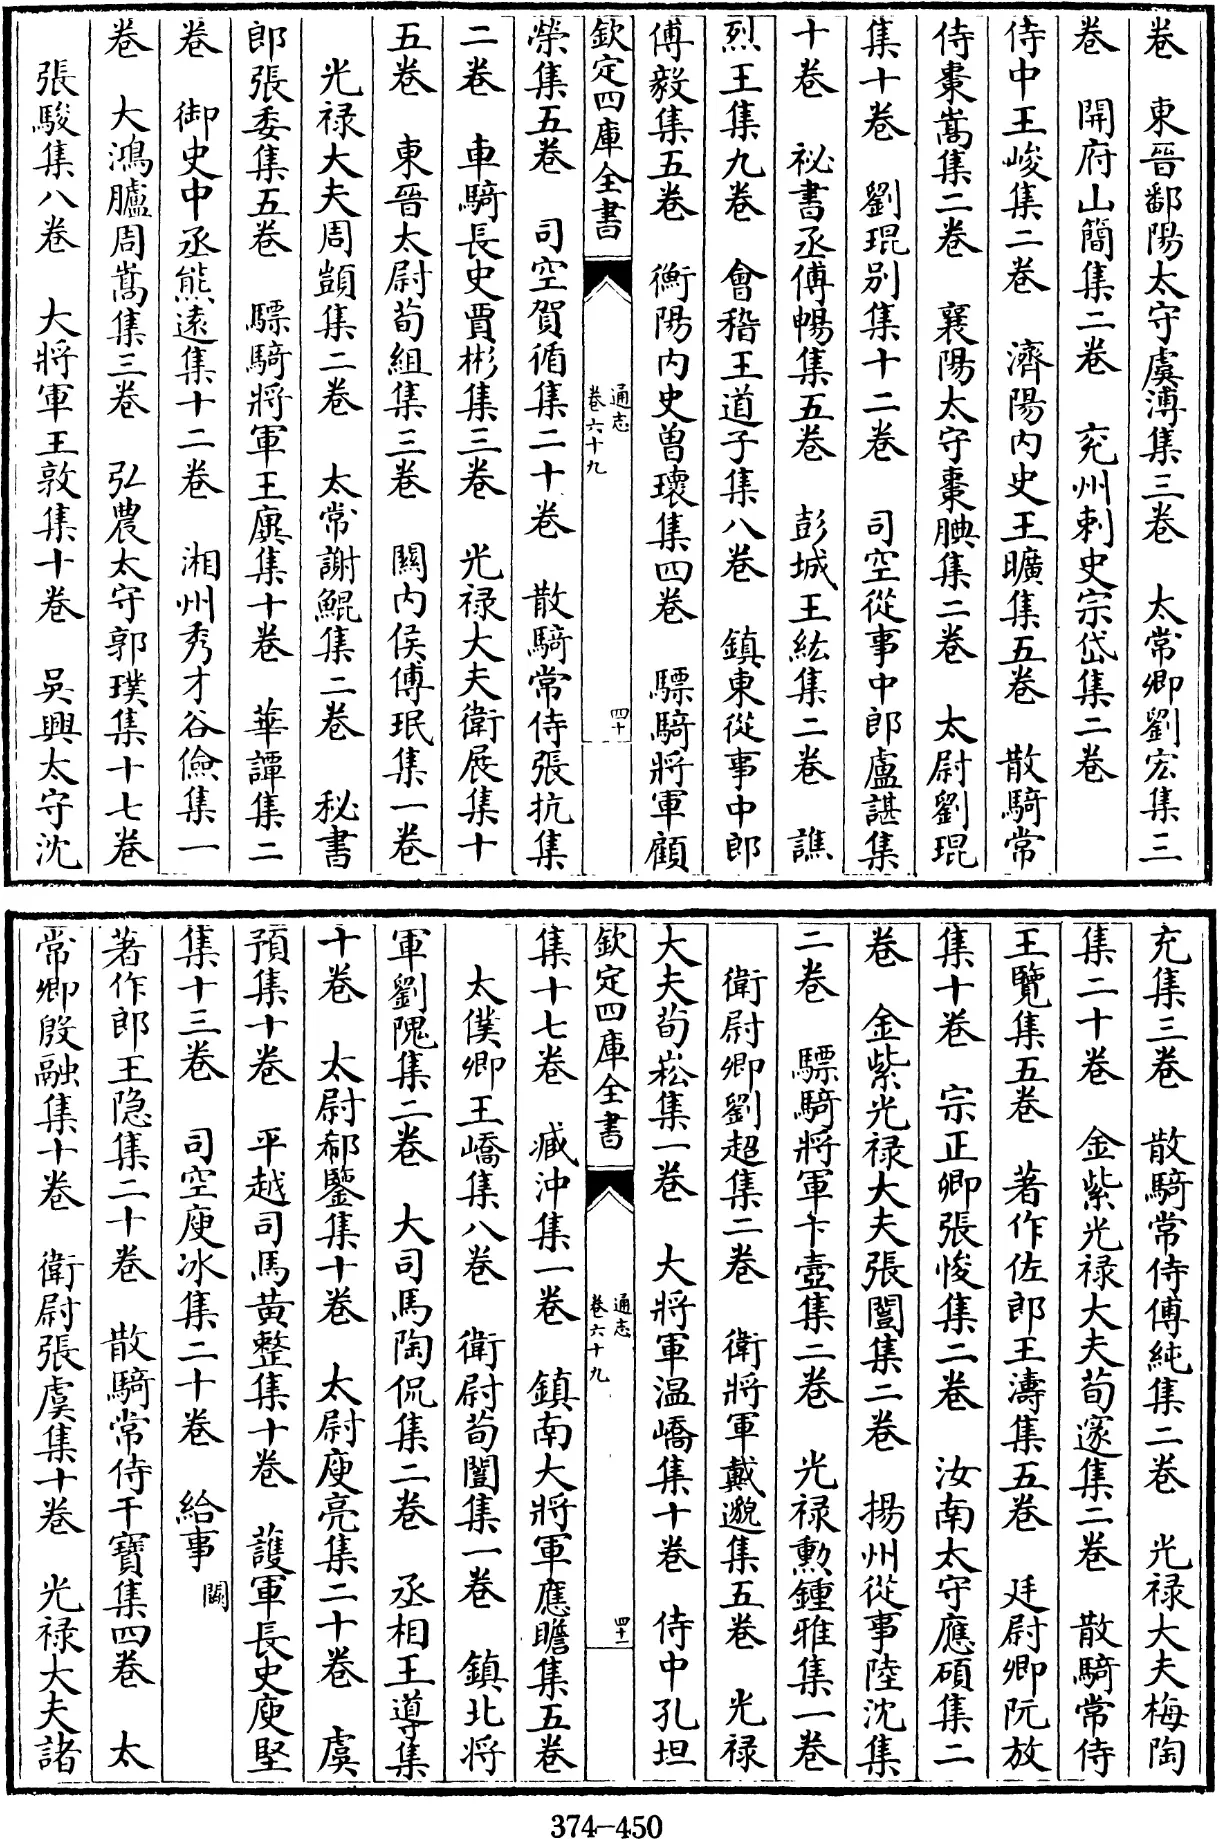 卷　東晉鄱陽太守虞溥集三卷　太常卿劉宏集三
卷　開府山簡集二卷　兖州刺史宗岱集二卷
侍中王峻集二卷　濟陽内史王曠集五卷　散騎常
侍棗嵩集二卷　襄陽太守棗腆集二卷　太尉劉琨
集十卷　劉琨别集十二卷　司空從事中郎盧諶集
十卷　祕書丞傅暢集五卷　彭城王紘集二卷　譙
烈王集九卷　會稽王道子集八卷　鎮東從事中郎
傅毅集五卷　衡陽内史曾瓌集四卷　驃騎將軍顧
欽定四庫全書　通志卷六十九　四十
榮集五卷　司空賀循集二十卷　散騎常侍張抗集
二卷　車騎長史賈彬集三卷　光禄大夫衛展集十
五卷　東晉太尉荀組集三卷　關内侯傅珉集一卷
光禄大夫周顗集二卷　太常謝鯤集二卷　秘書
郎張委集五卷　驃騎將軍王廙集十卷　華譚集二
卷　御史中丞熊逺集十二卷　湘州秀才谷儉集一
卷　大鴻臚周嵩集三卷　弘農太守郭璞集十七卷
張駿集八卷　大將軍王敦集十卷　吳興太守沈
充集三卷　散騎常侍傅純集二卷　光禄大夫梅陶
集二十卷　金紫光禄大夫荀邃集二卷　散騎常侍
王覽集五卷　著作佐郎王濤集五卷　廷尉卿阮放
集十卷　宗正卿張悛集二卷　汝南太守應碩集二
卷　金紫光禄大夫張闓集二卷　揚州從事陸沈集
二卷　驃騎將軍卞壼集二卷　光禄勲鍾雅集一卷
衛尉卿劉超集二卷　衛將軍戴邈集五卷　光禄
大夫荀崧集一卷　大將軍温嶠集十卷　侍中孔坦
欽定四庫全書　通志卷六十九　四十一
集十七卷　臧沖集一卷　鎮南大將軍應瞻集五卷
太僕卿王嶠集八卷　衛尉荀闓集一卷　鎮北將
軍劉隗集二卷　大司馬陶侃集二卷　丞相王導集
十卷　太尉郗鑒集十卷　太尉庾亮集二十卷　虞
預集十卷　平越司馬黄整集十卷　護軍長史庾堅
集十三卷　司空庾冰集二十卷　給事闕
著作郎王隐集二十卷　散騎常侍干寶集四卷　太
常卿殷融集十卷　衛尉張虞集十卷　光禄大夫諸
374-450